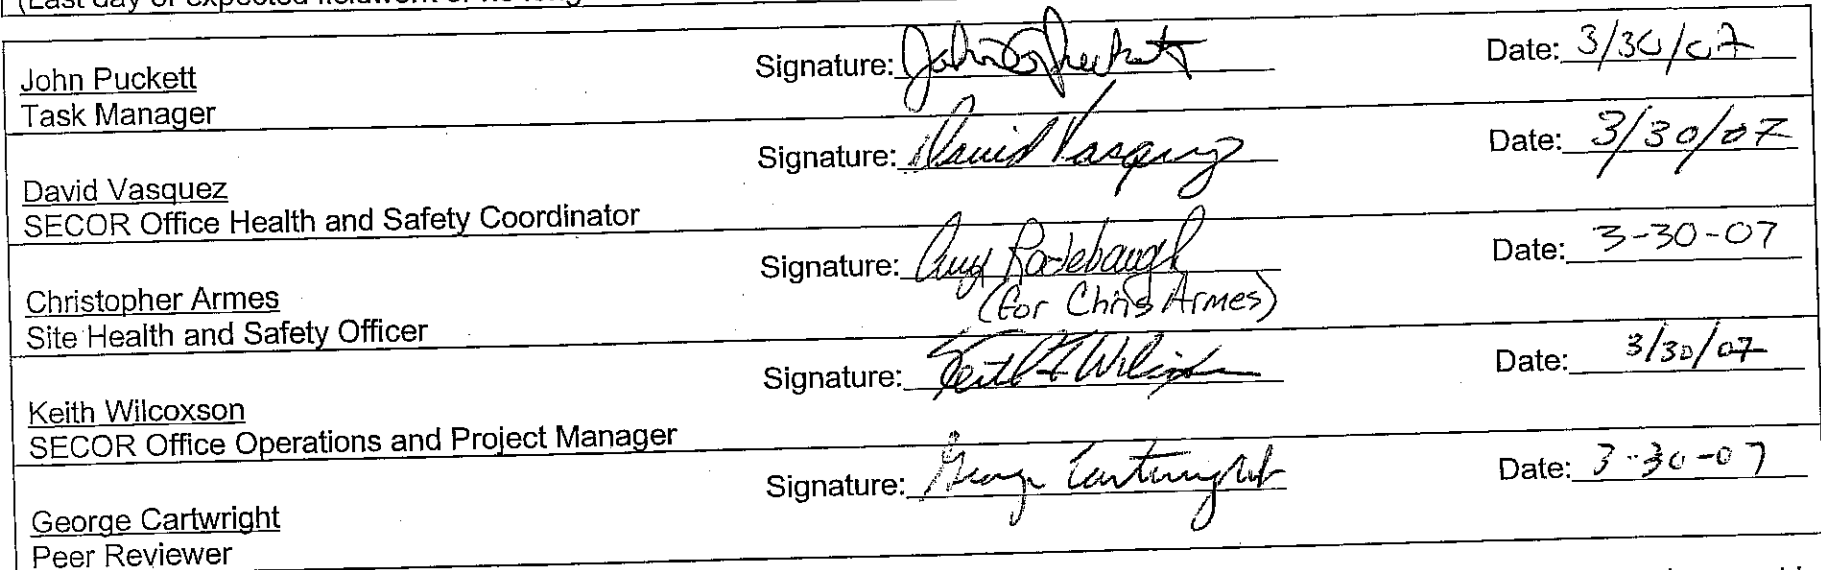 (Last day of expected fieldwork or no long
John Puckett
Task Manager
Signature: John G Puckett
Date: 3/30/07
David Vasquez
SECOR Office Health and Safety Coordinator
Signature: David Vasquez
Date: 3/30/07
Christopher Armes
Site Health and Safety Officer
Signature: Rodebaugh
(for Chris Armes)
Date: 3-30-07
Keith Wilcoxson
SECOR Office Operations and Project Manager
Signature: Keith Wilcoxson
Date: 3/30/07
George Cartwright
Peer Reviewer
Signature: George Cartwright
Date: 3-30-07